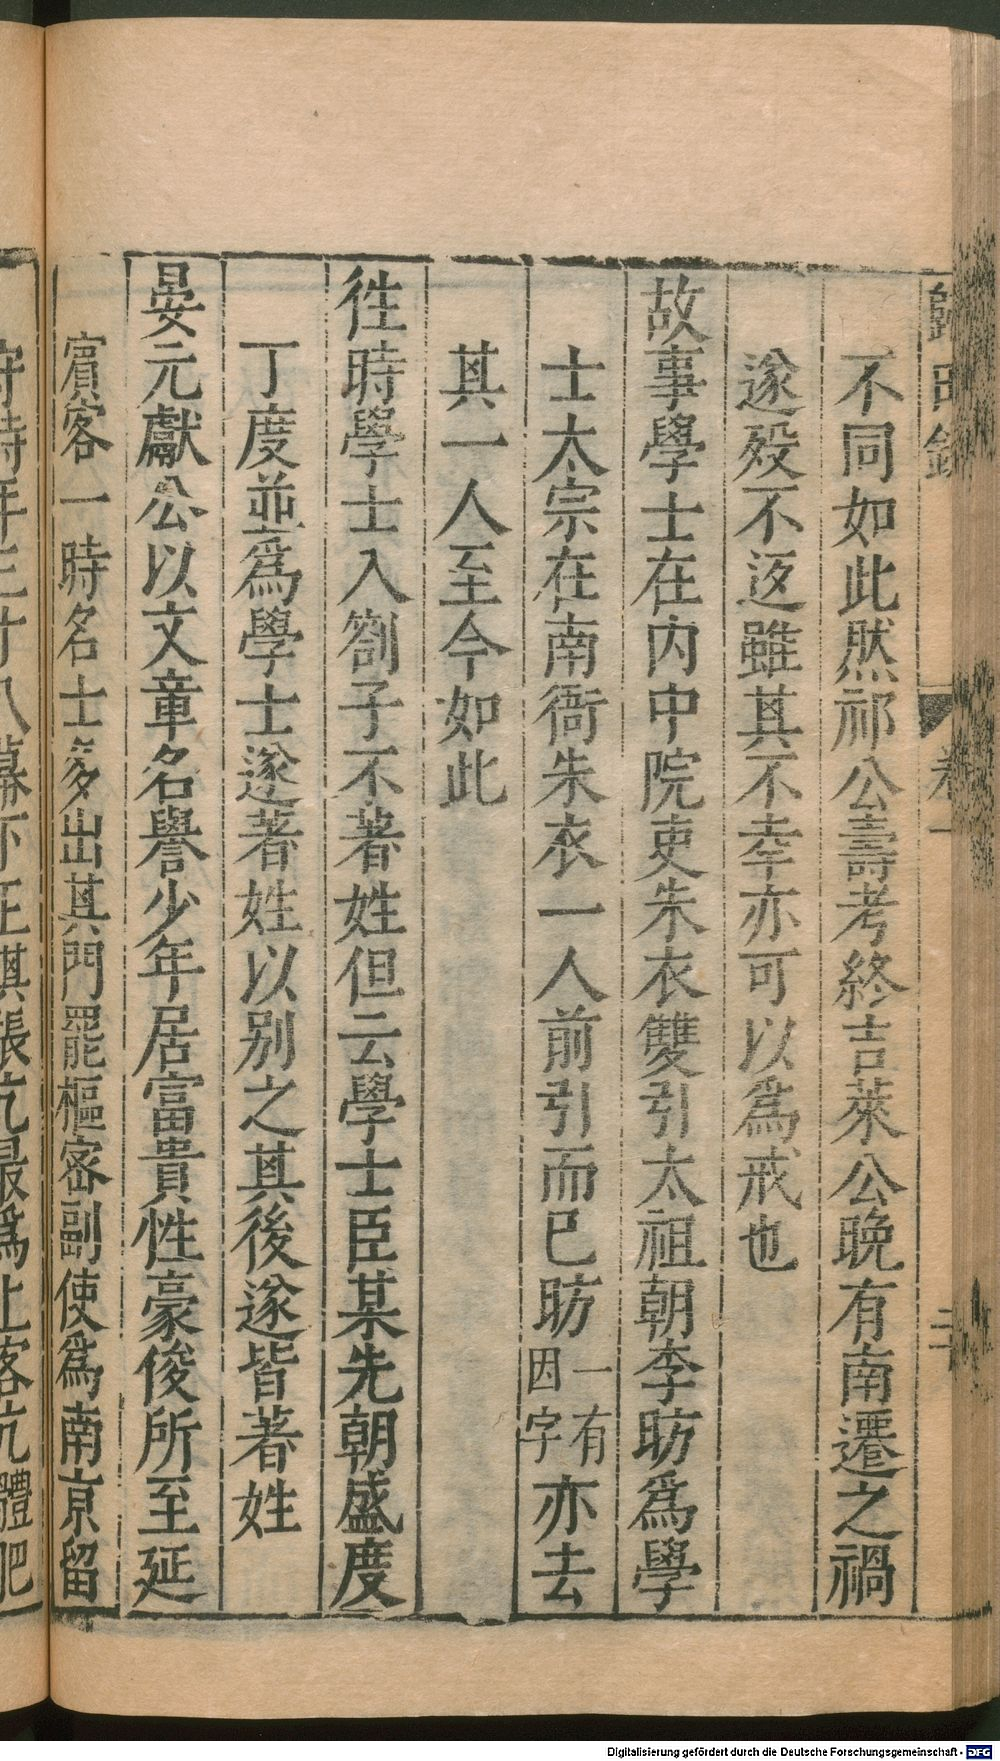 歸田錄 卷一
不同如此然祁公壽考終吉萊公晚有南遷之禍
遂殁不返雖其不幸亦可以為戒也
故事學士在内中院吏朱衣雙引太祖朝李昉為學
士太宗在南衙朱衣一人前引而已昉一有因字亦去
其一人至今如此
徃時學士入劄子不著姓但云學士臣某先朝盛度
丁度並為學士遂著姓以别之其後遂皆著姓
晏元獻公以文章名譽少年居富貴性豪俊所至延
賓客一時名士多出其門罷樞密副使為南京留
守時年三十八幕下王琪張亢最為上客亢體肥
Digitalisierung gefördert durch die Deutsche Forschungsgemeinschaft - DFG